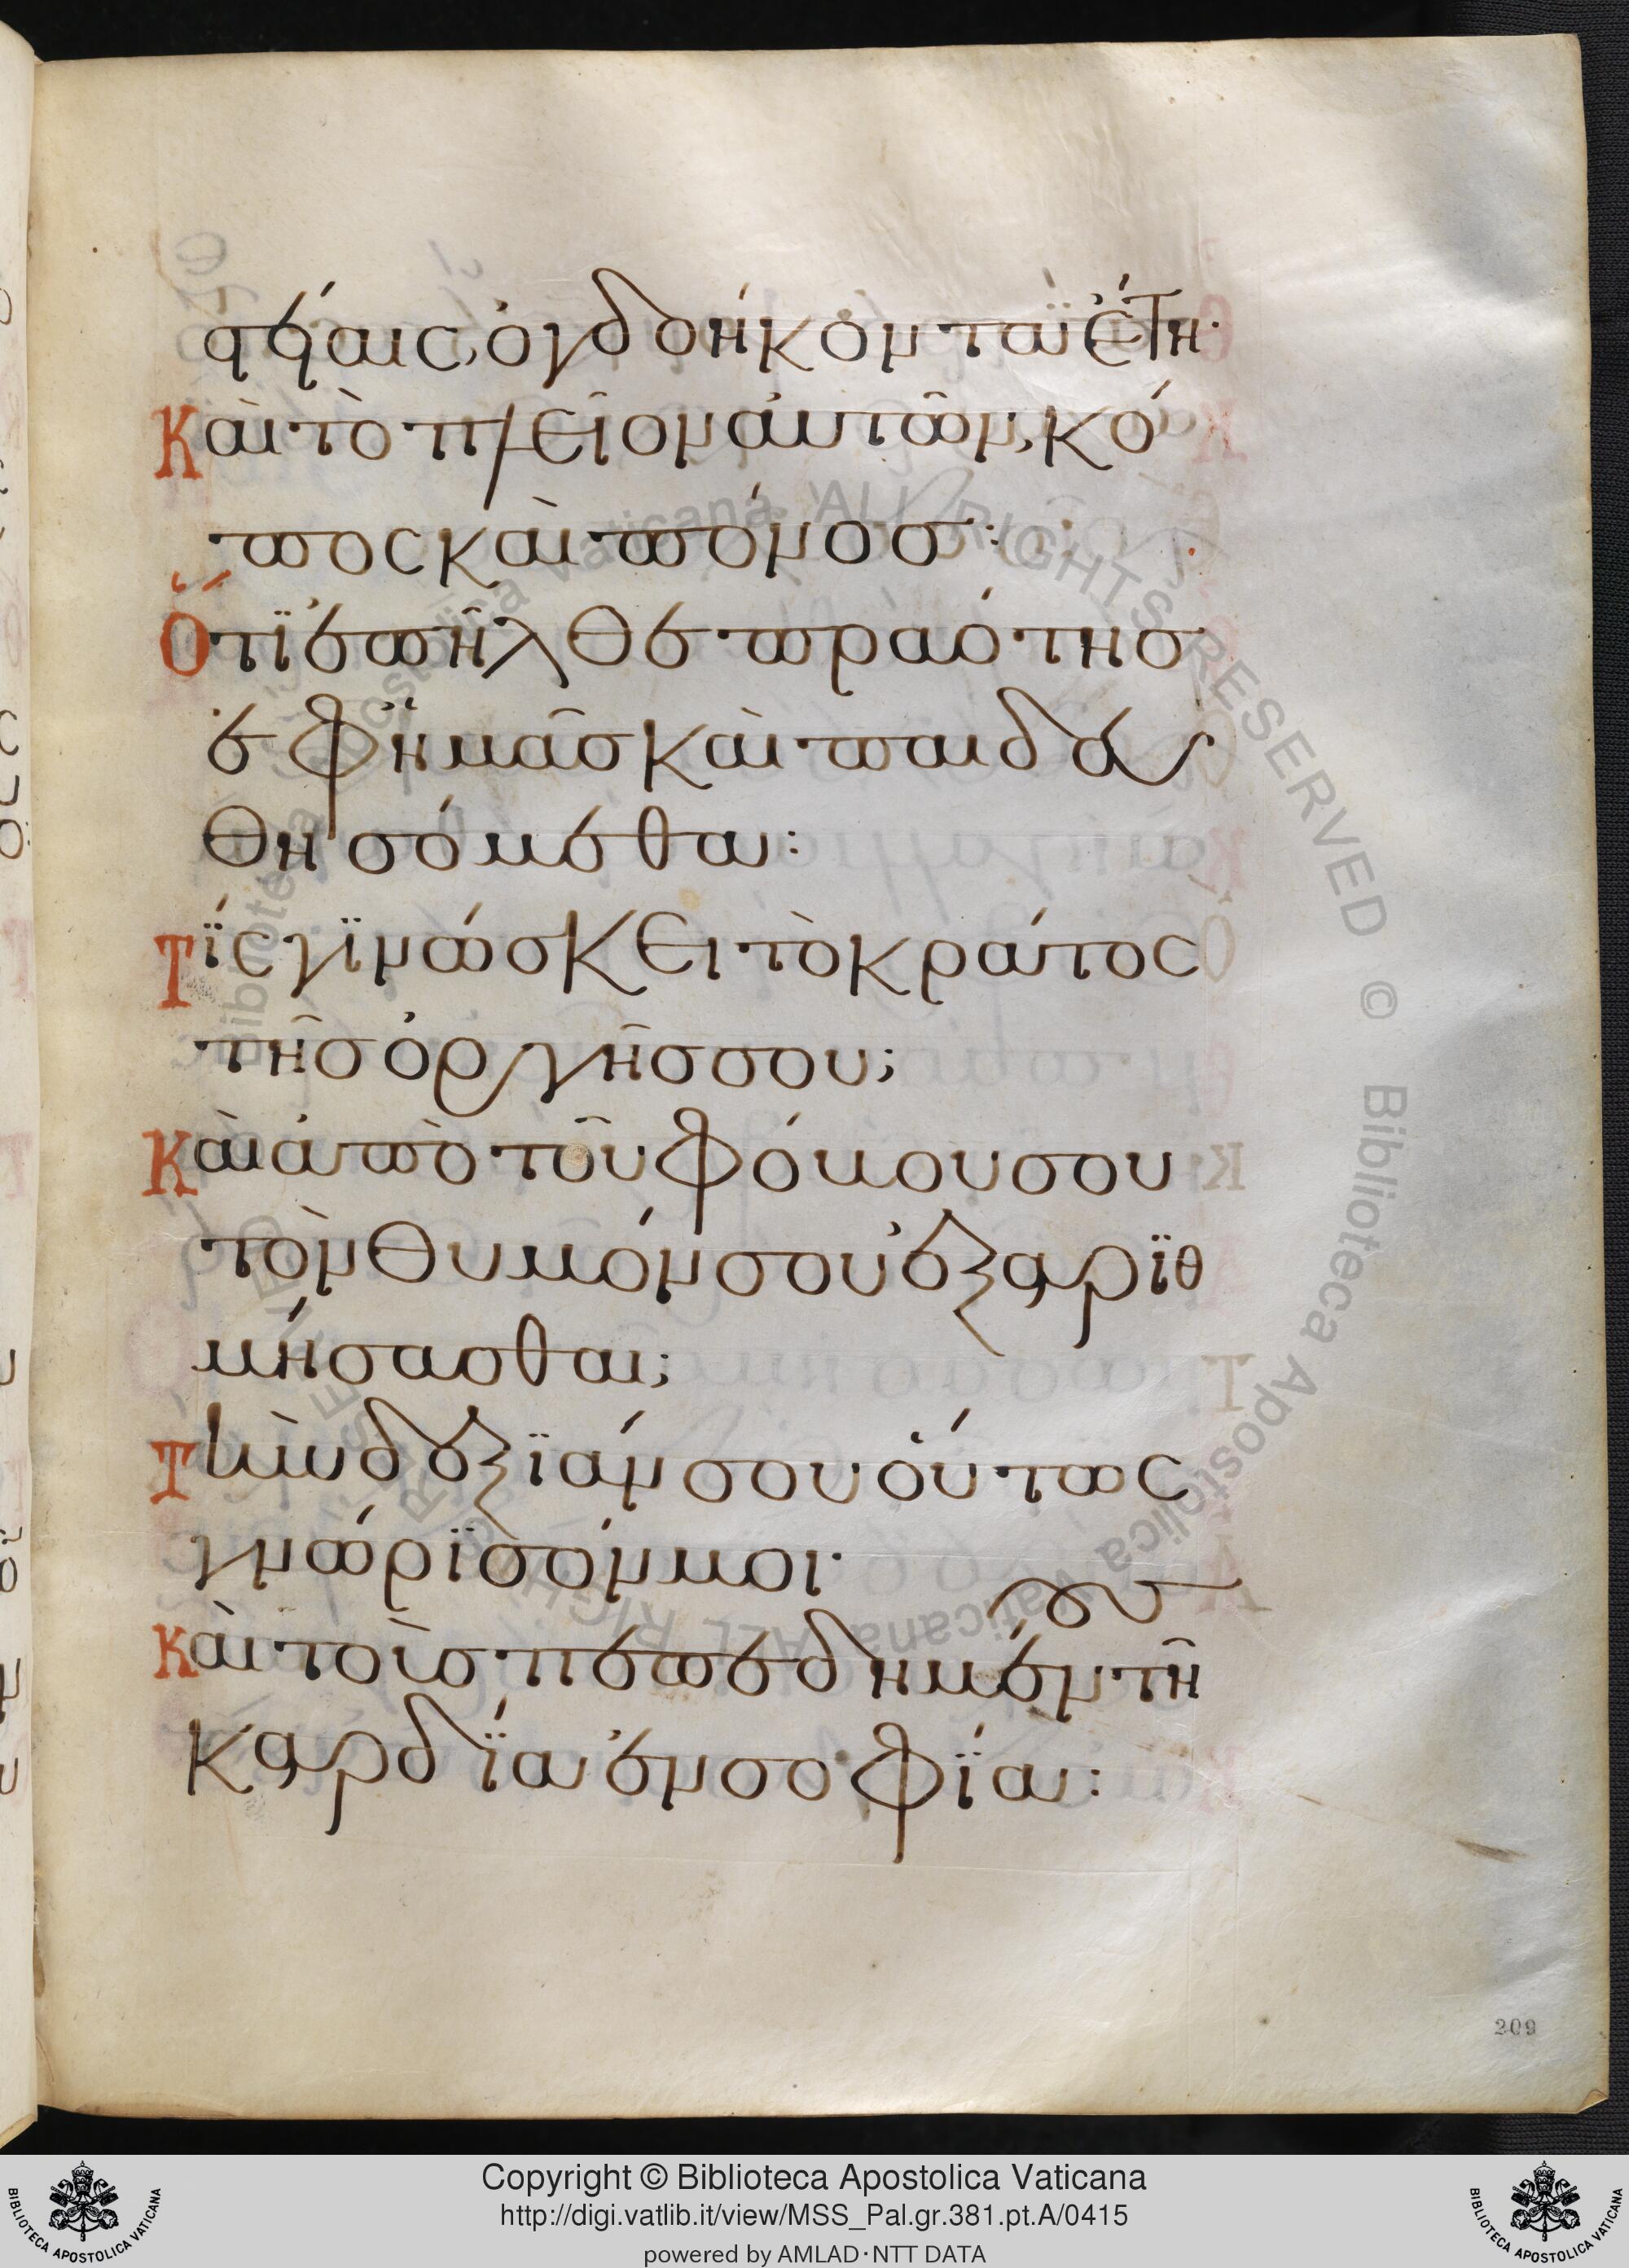 στείαις, ὀγδοήκοντα ἔτη·
Καὶ τὸ πλεῖον αὐτῶν, κό
πος καὶ πόνος:
Ὅτϊ ἐπῆλθε πραότης
ἐφ ἡμᾶς καὶ παιδευ
θησόμεθα:
Τίς γϊνώσκει τὸ κράτος
τῆς ὀργῆς σου;
Καὶ ἀπὸ τοῦ φόβου σου
τὸν θυμόν σου ἐξαρϊθ
μήσασθαι;
Τὴν δεξϊάν σου οὕτως
γνώρϊσόν μοι·
Καὶ τοὺς πεπεδημένους τῆ
καρδίᾳ ἐν σοφίᾳ:
209
Biblioteca Apostolica Vaticana ALL RIGHTS RESERVED ©
Copyright © Biblioteca Apostolica Vaticana
http://digi.vatlib.it/view/MSS_Pal.gr.381.pt.A/0415
powered by AMLAD·NTT DATA
BIBLIOTECA APOSTOLICA VATICANA
BIBLIOTECA APOSTOLICA VATICANA